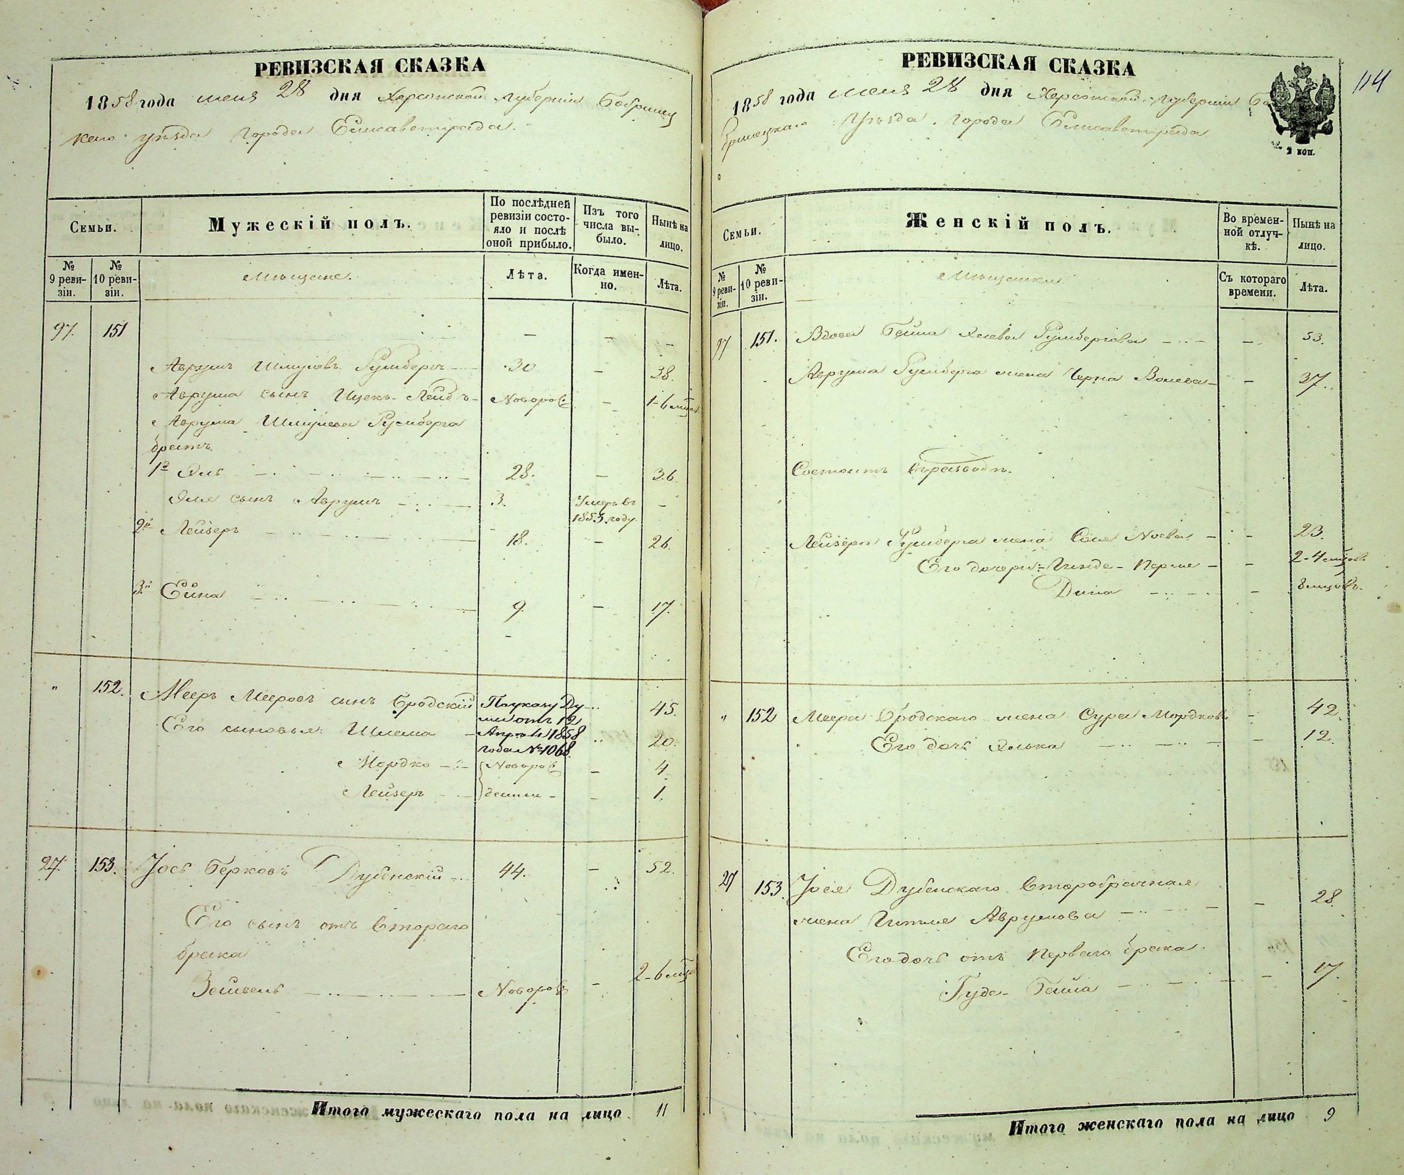 РЕВИЗСКАЯ СКАЗКА
1858 года мая 28 дня Херсонской Губернии Бобринец
каго уѣзда Города Елисаветграда.
Семьи.
Мужескій полъ.
По послѣдней ревизіи состо-
яло и послѣ оной прибыло.
Изъ того числа вы-
было.
Нынѣ на лицо.
№ 9 реви-
зіи.
№ 10 реви-
зіи.
Мѣщане.
Лѣта.
Когда имен-
но.
Лѣта.
97. 151
Аврумъ Шмулевъ Гумбергъ 30 — 38.
Аврума сынъ Ицекъ-Лейбъ Новорож — 1-6 мцо
Аврума Шмулева Гумберга
братъ
1й Эль 28. — 36
Эля сынъ Аврумъ 3. Умеръ въ
1853 году —
2й Лейзеръ 18. — 26.
3й Ейна 9. — 17.
" 152. Мееръ Мееровъ сынъ Бродскій По указу Ду
мы отъ 12
Апреля 1858
года № 1068 45.
Его сыновья: Шлема 20.
Мордко Новорож — 4.
Лейзеръ денные — 1.
27. 153. Іось Берковъ Дубенскій 44. — 52.
Его сынъ отъ втораго
брака
Зейвель Новорож — 2-6 мцо
Итого мужескаго пола на лицо 11
РЕВИЗСКАЯ СКАЗКА
1858 года мая 28 дня Херсонской Губернии Бо
бринецкаго Уѣзда Города Елисаветграда
114
2 коп.
Семьи.
Женскій полъ.
Во времен-
ной отлуч-
кѣ.
Нынѣ на лицо.
№ 9 реви-
зіи.
№ 10 реви-
зіи.
Мѣщанки
Съ котораго времени.
Лѣта.
97 151. Вдова Бейла Гумбергова — 53.
Аврума Гумберга жена Черна — 37.
Состоитъ въ разводѣ.
Лейзера Гумберга жена Соня — 23.
Его дочери: Гинде-Перле — 2-4 мцовъ
Дина — 8 мцовъ.
" 152 Меера Бродскаго жена Сура Мордков — 42.
Его дочь — 12.
27 153 Іося Дубенскаго второбрачная
жена Гитля Аврумова — 28.
Его дочь отъ перваго брака.
Гуде-Бейла — 17.
Итого женскаго пола на лицо 9